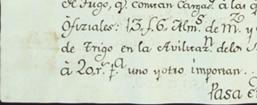 de Jugo, q.e constan Cargas. à las q
Ofiziales: 13. f. 6 Alm.s de M.zo y
de Trigo en la Avilitaz.n delo
à 20 r.s f.a uno y otro importan
Pasa E